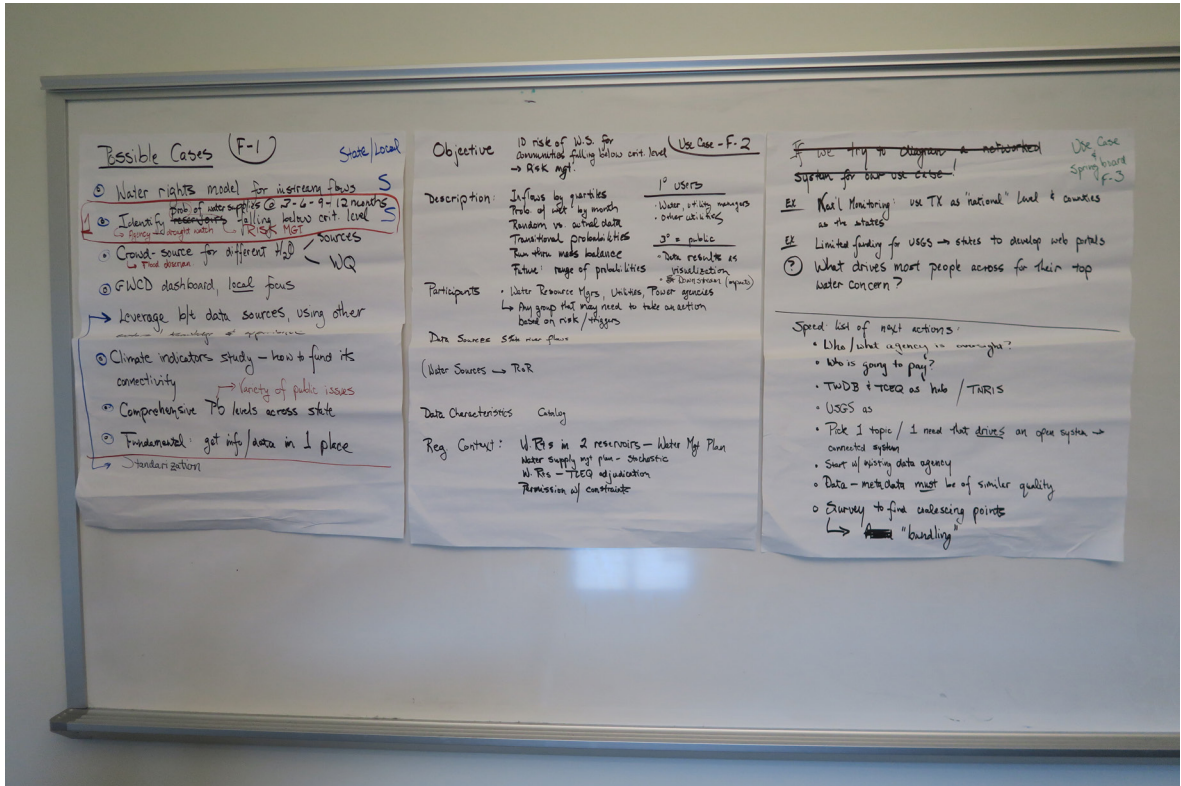 Possible Cases F-1 State/Local
Water rights model for instream flows S
prob. of water supplies @ 3-6-9-12 months
1 Identify reservoirs falling below crit. level S
drought watch RISK MGT
Crowd-source for different H2O sources
WQ
Flood
GWCD dashboard, local focus
Leverage b/t data sources, using other
Climate indicators study – how to fund its
connectivity
Variety of public issues
Comprehensive Pb levels across state
Fundamental: get info/data in 1 place
Standarization
Objective ID risk of W.S. for
communities falling below crit. level
→ Risk mgt.
Use Case – F-2
Description: Inflows by quartiles
Prob. of wet by month
Random vs. actual data
Transitional probabilities
Run thru mass balance
Future: range of probabilities
1° users
• Water, utility managers
• Other utilities
= public
• Data results as
visualization
• Downstream (impacts)
Participants • Water Resource Mgrs, Utilities, Power agencies
↳ Any group that may need to take an action
based on risk/triggers
Data Sources river flows
(Water Sources → RoR
Data Characteristics Catalog
Reg Context: W. Rts in 2 reservoirs – Water Mgt Plan
Water supply mgt plan – stochastic
W. Rts – TCEQ adjudication
Permission w/ constraints
If we try to diagram a networked
system for our use case!
Use Case
&
Springboard
F-3
Ex Monitoring: use TX as "national" level & counties
as the states
Ex Limited funding for USGS → states to develop web portals
? What drives most people across for their top
water concern?
Speed: list of next actions:
• Who/what agency is oversight?
• Who is going to pay?
• TWDB & TCEQ as hub / TNRIS
• USGS as
• Pick 1 topic / 1 need that drives an open system →
connected system
• Start w/ existing data agency
• Data – metadata must be of similar quality
• Survey to find coalescing points
↳ "bundling"